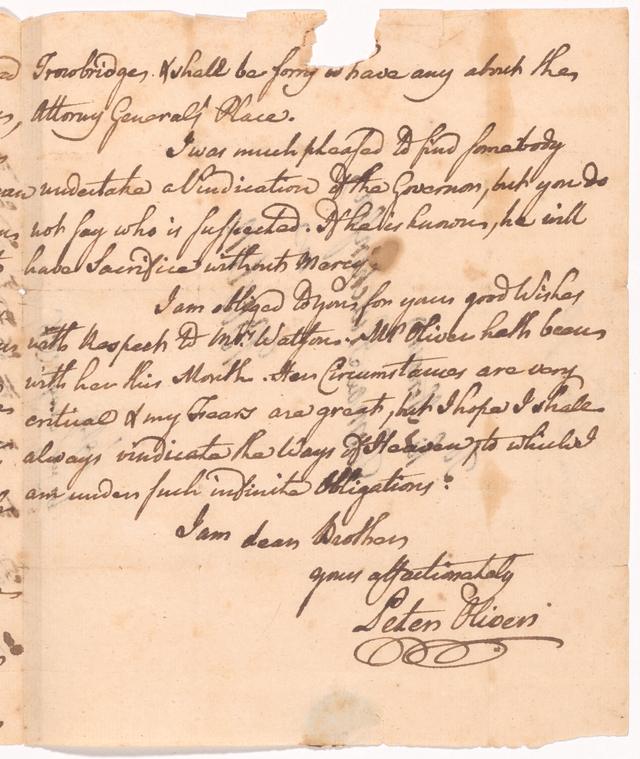 Trowbridges. & shall be sorry to have any about the
Attorny Generals' Place.
I was much pleased to find somebody
undertake a Vindication of the Governor, but you do
not say who is suspected. If he is known, he will
have Sacrifice without Mercy.
I am obliged to you for your good Wishes
with Respect to Mrs. Watson. Mrs. Oliver hath been
with her this Month. Her Circumstances are very
critical & my Fears are great, but I hope I shall
always vindicate the Ways of Heaven, to which I
am under such infinite Obligations.
I am dear Brother
your affectionately
Peter Oliver